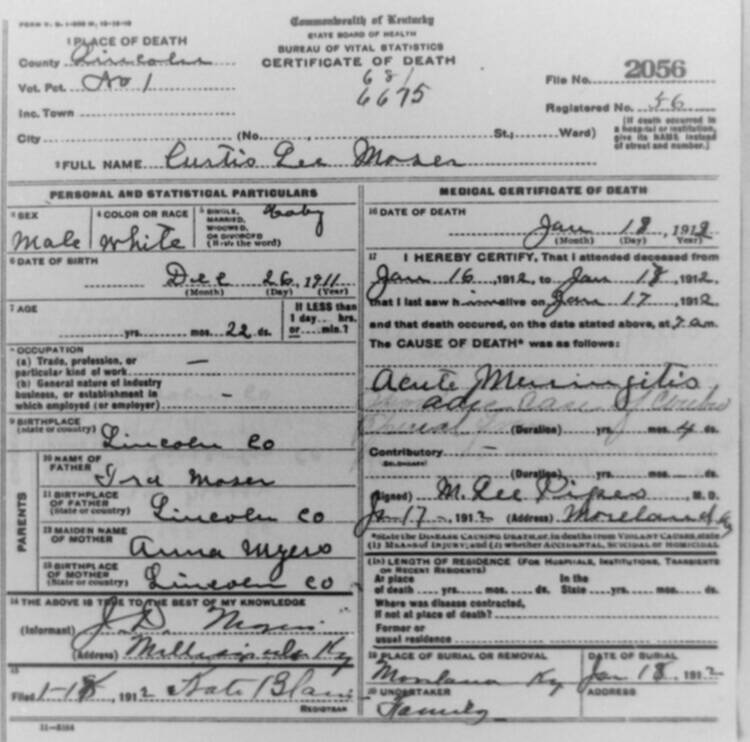 FORM V. S. 1-
Commonwealth of Kentucky
STATE BOARD OF HEALTH
BUREAU OF VITAL STATISTICS
CERTIFICATE OF DEATH
1 PLACE OF DEATH
County Lincoln
Vot. Pct. No 1
Inc. Town
City (No. , St.; Ward)
681
6675
File No. 2056
Registered No. 56
(If death occurred in
a hospital or institution,
give its NAME instead
of street and number.)
2 FULL NAME Curtis Lee Moser
PERSONAL AND STATISTICAL PARTICULARS
3 SEX
Male
4 COLOR OR RACE
White
5 SINGLE,
MARRIED,
WIDOWED,
OR DIVORCED
(Write the word)
Baby
6 DATE OF BIRTH
Dec 26, 1911
(Month) (Day) (Year)
7 AGE
yrs. mos. 22 ds.
If LESS than
1 day hrs.
or min.?
8 OCCUPATION
(a) Trade, profession, or
particular kind of work —
(b) General nature of industry
business, or establishment in
which employed (or employer) —
9 BIRTHPLACE
(State or country) Lincoln Co
PARENTS
10 NAME OF
FATHER Ira Moser
11 BIRTHPLACE
OF FATHER
(State or country) Lincoln Co
12 MAIDEN NAME
OF MOTHER Anna Myers
13 BIRTHPLACE
OF MOTHER
(State or country) Lincoln Co
14 THE ABOVE IS TRUE TO THE BEST OF MY KNOWLEDGE
(Informant) J. D. Myers
(Address) Ky
15
Filed 1-18, 1912 Kate
REGISTRAR
11-
MEDICAL CERTIFICATE OF DEATH
16 DATE OF DEATH
Jan 18, 1912
(Month) (Day) (Year)
17 I HEREBY CERTIFY, That I attended deceased from
Jan 16, 1912, to Jan 18, 1912,
that I last saw him alive on Jan 17, 1912
and that death occured, on the date stated above, at 7 a.m.
The CAUSE OF DEATH* was as follows:
Acute Meningitis
(Duration) yrs. mos. 4 ds.
Contributory —
(SECONDARY)
(Duration) yrs. mos. ds.
(Signed) M. Lee Pipes, M. D.
Jan 17, 1912 (Address) Moreland Ky
*State the DISEASE CAUSING DEATH, or, in deaths from VIOLENT CAUSES, state
(1) MEANS OF INJURY; and (2) whether ACCIDENTAL, SUICIDAL or HOMICIDAL
(18) LENGTH OF RESIDENCE (FOR HOSPITALS, INSTITUTIONS, TRANSIENTS
OR RECENT RESIDENTS)
At place In the
of death yrs. mos. ds. State yrs. mos. ds.
Where was disease contracted,
if not at place of death?
Former or
usual residence
19 PLACE OF BURIAL OR REMOVAL
Ky
DATE OF BURIAL
Jan 18, 1912
20 UNDERTAKER
Family
ADDRESS